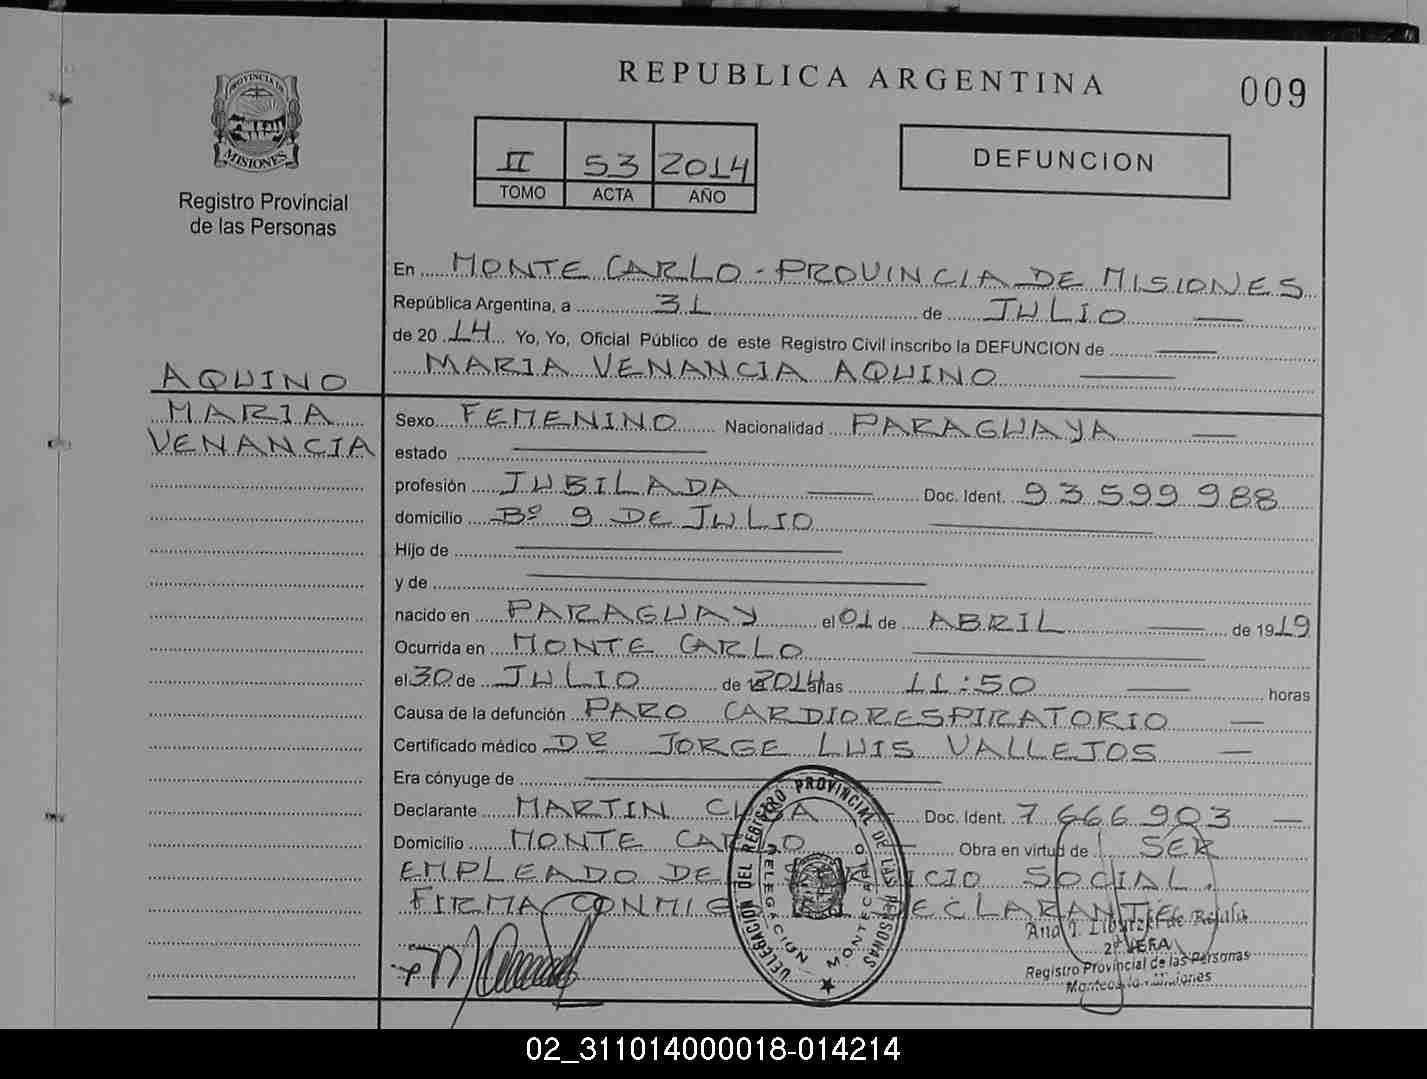 REPUBLICA ARGENTINA
009
PROVINCIA DE
MISIONES
Registro Provincial
de las Personas
II 53 2014
TOMO ACTA AÑO
DEFUNCION
En MONTE CARLO - PROVINCIA DE MISIONES
República Argentina, a 31 de JULIO
de 20 14 Yo, Yo, Oficial Público de este Registro Civil inscribo la DEFUNCION de
MARIA VENANCIA AQUINO
AQUINO
MARIA
VENANCIA
Sexo FEMENINO Nacionalidad PARAGUAYA
estado
profesión JUBILADA Doc. Ident. 93 599 988
domicilio Bº 9 DE JULIO
Hijo de
y de
nacido en PARAGUAY el 01 de ABRIL de 1919
Ocurrida en MONTE CARLO
el 30 de JULIO de 2014 a las 11:50 horas
Causa de la defunción PARO CARDIORESPIRATORIO
Certificado médico DR JORGE LUIS VALLEJOS
Era cónyuge de
Declarante MARTIN Doc. Ident. 7 666 903
Domicilio MONTE CARLO Obra en virtud de SER
EMPLEADO DE SERVICIO SOCIAL.
FIRMA CONMIGO EL DECLARANTE
DELEGACION DEL REGISTRO PROVINCIAL DE LAS PERSONAS
DELEGACION MONTECARLO
Ana
2ª JEFA
Registro Provincial de las Personas
Montecarlo - Misiones
02_311014000018-014214